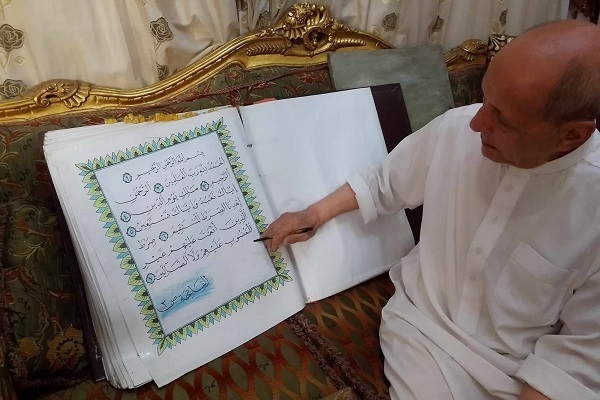 بسم الله الرحمن الرحيم
الحمد لله رب العالمين الرحمن
الرحيم مالك يوم الدين
إياك نعبد وإياك نستعين
إهدنا الصرط المستقيم صرط
الذين أنعمت عليهم غير
المغضوب عليهم ولا الضالين
الفاتحة